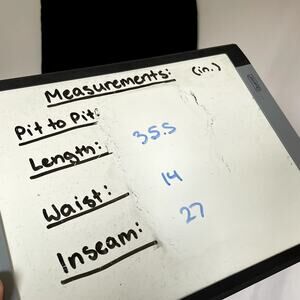 Measurements: (in.)
Pit to Pit:
Length: 35.5
Waist: 14
Inseam: 27